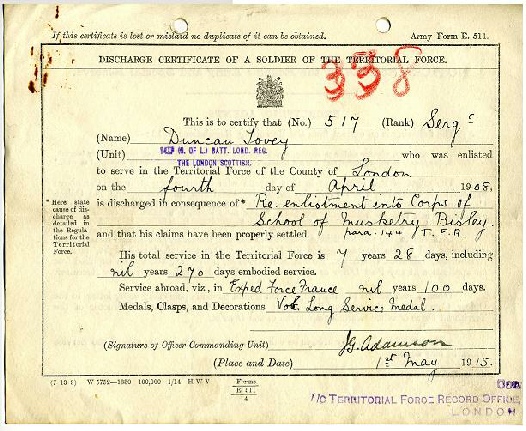 If this certificate is lost or mislaid no duplicate of it can be obtained. Army Form E. 511.
DISCHARGE CERTIFICATE OF A SOLDIER OF THE TERRITORIAL FORCE.
338
This is to certify that (No.) 517 (Rank) Sergt
(Name) Duncan Tovey
(Unit) 14TH (C. OF L.) BATT. LOND. REG. who was enlisted
THE LONDON SCOTTISH.
to serve in the Territorial Force of the County of London
on the fourth day of April 1908,
is discharged in consequence of* Re-enlistment into Corps of
School of Musketry Bisley
and that his claims have been properly settled para. 144 T.F.R
* Here state cause of discharge as detailed in the Regulations for the Territorial Force.
His total service in the Territorial Force is 7 years 28 days, including
nil years 270 days embodied service.
Service abroad, viz., in Exped Force France nil years 100 days.
Medals, Clasps, and Decorations Vol. Long Service Medal.
(Signature of Officer Commanding Unit) J.G. Adamson
(Place and Date) 1st May 1915.
(7 10 8) W 7752—1380 100,000 1/14 H W V Forms E. 511. 4
I/C TERRITORIAL FORCE RECORD OFFICE,
LONDON